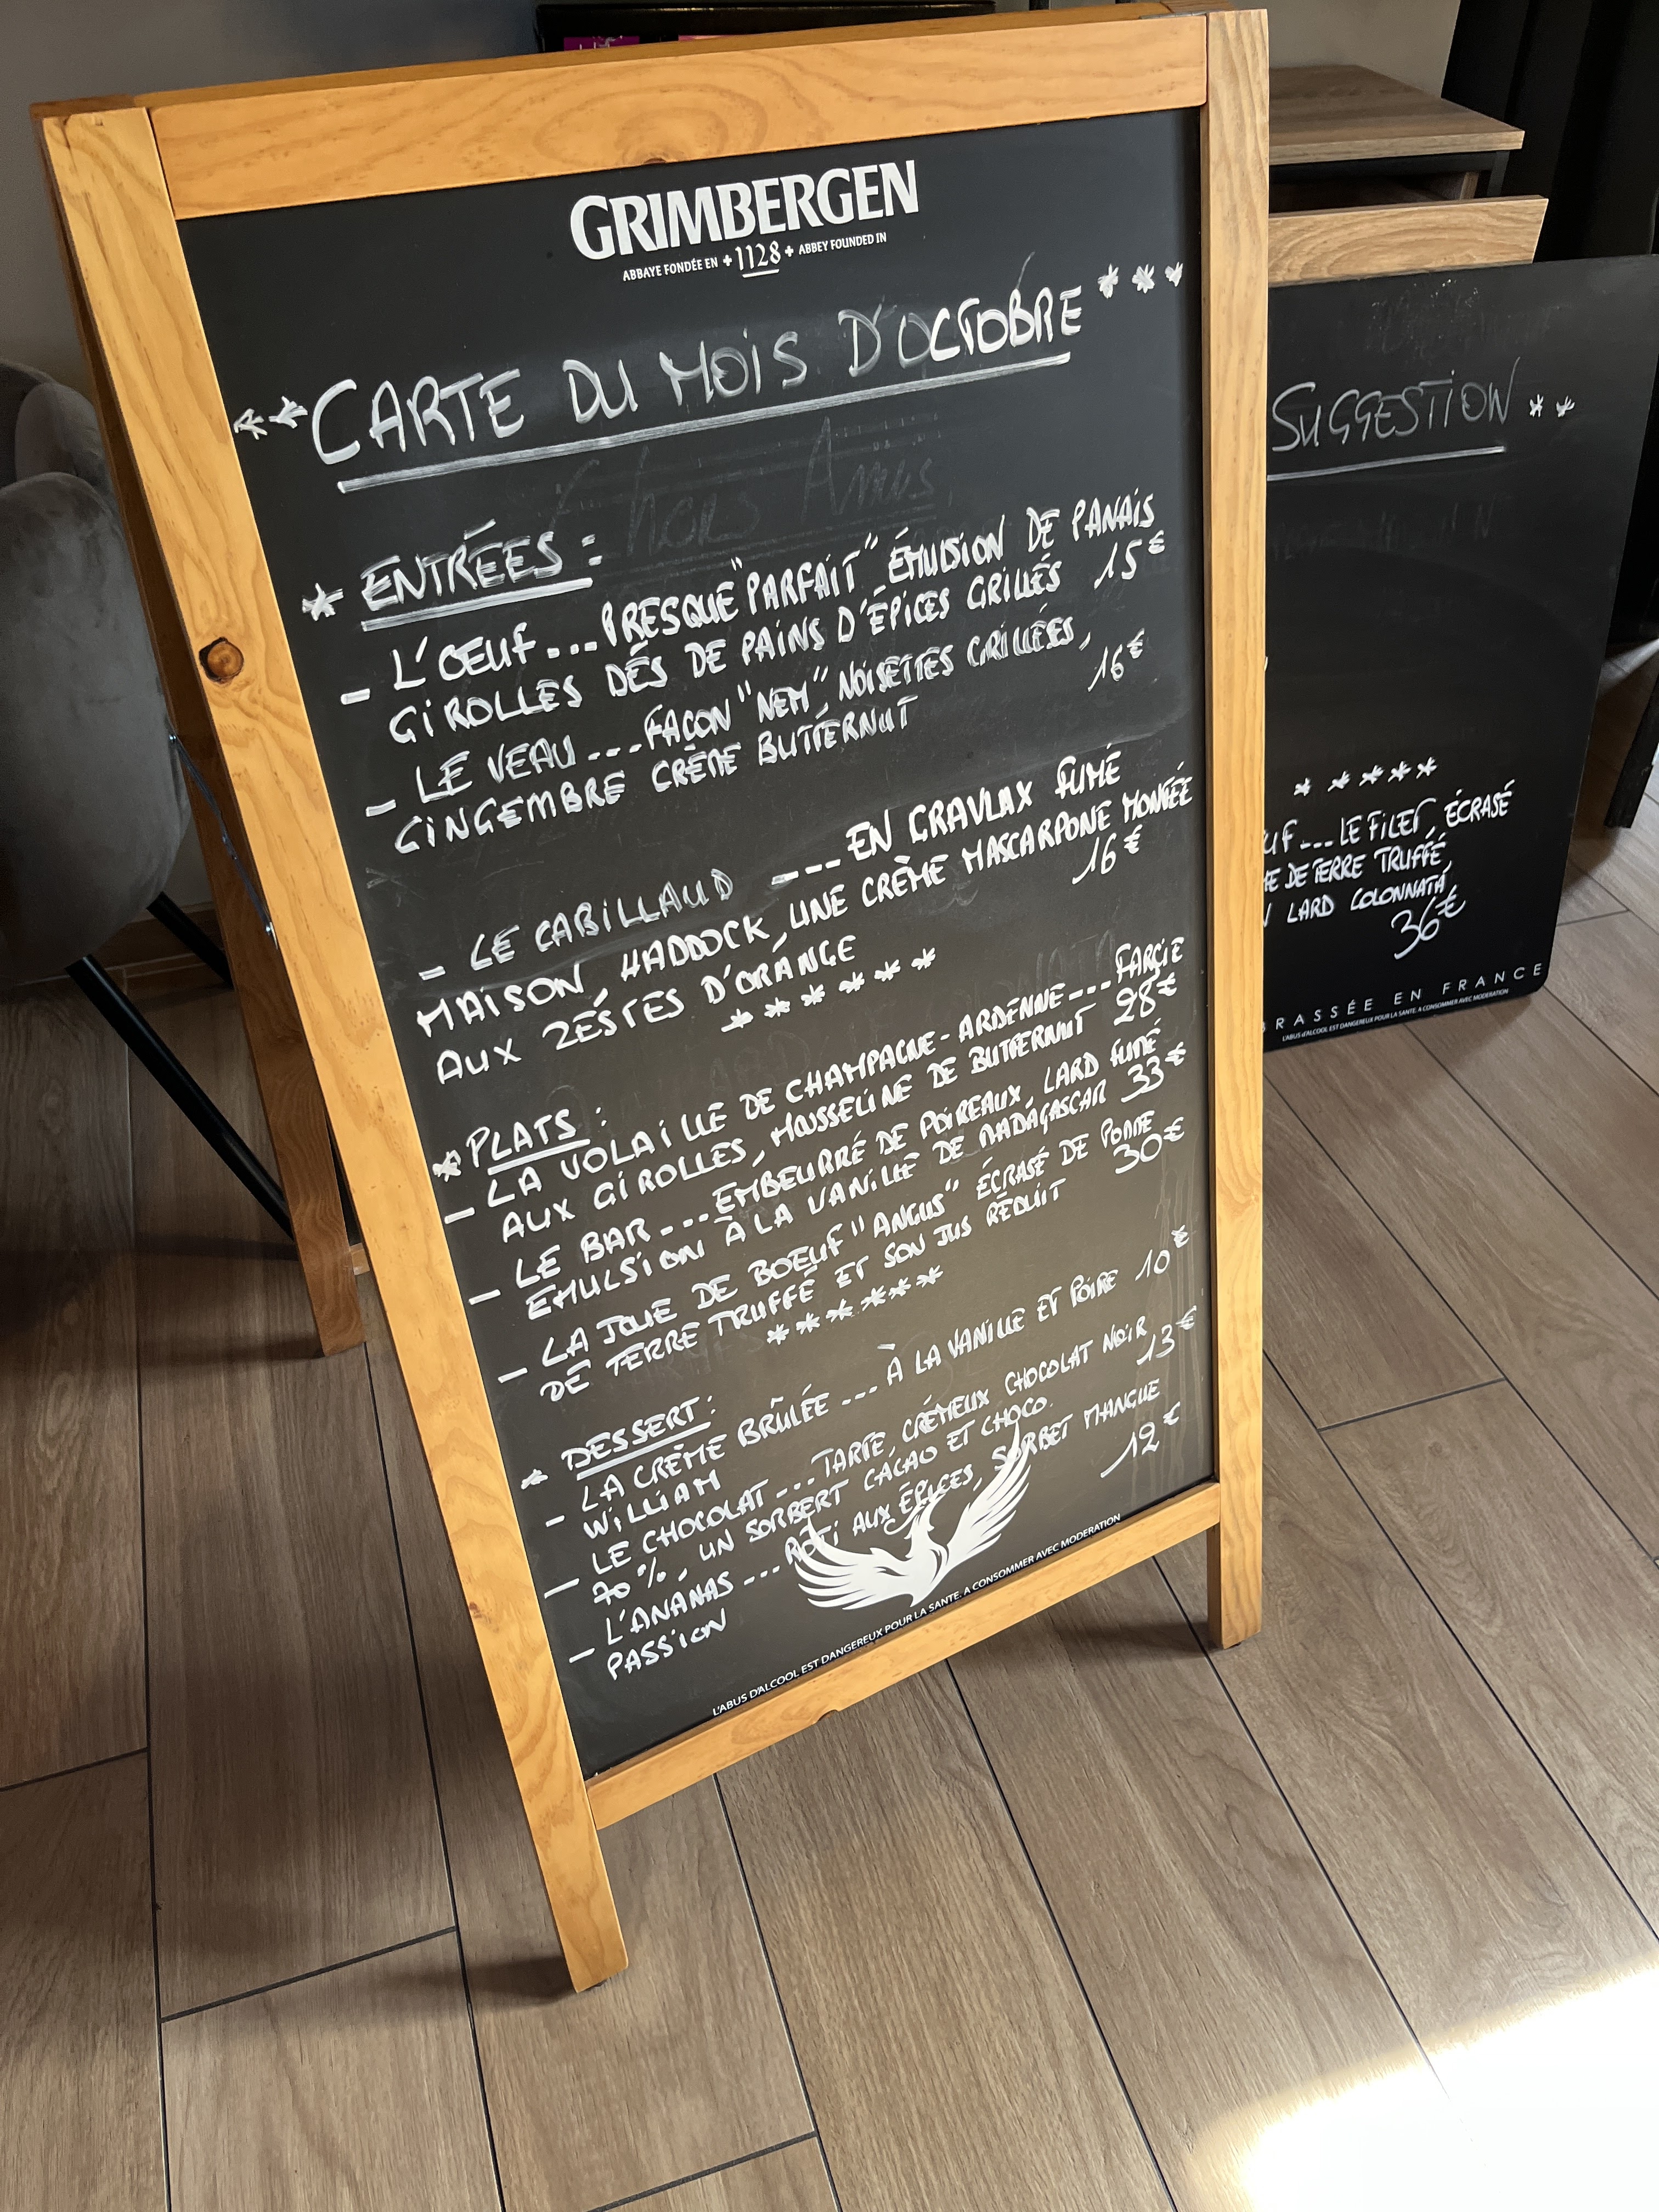 GRIMBERGEN
ABBAYE FONDÉE EN +1128+ ABBEY FOUNDED IN
**CARTE DU MOIS D'OCTOBRE***
* ENTRÉES :
- L'ŒUF...PRESQUE "PARFAIT" ÉMULSION DE PANAIS
GIROLLES DÉS DE PAINS D'ÉPICES GRILLÉS 15€
- LE VEAU...FAÇON "NEM", NOISETTES GRILLÉES,
GINGEMBRE CRÈME BUTTERNUT 16€
- LE CABILLAUD ---- EN GRAVLAX FUMÉ
MAISON, HADDOCK, UNE CRÈME MASCARPONE MONTÉE
AUX ZÉSTES D'ORANGE 16€
* * * * * *
* PLATS :
- LA VOLAILLE DE CHAMPAGNE-ARDENNE---FARCIE
AUX GIROLLES, MOUSSELINE DE BUTTERNUT 28€
- LE BAR...EMBEURRÉ DE POIREAUX, LARD FUMÉ
ÉMULSION À LA VANILLE DE MADAGASCAR 33€
- LA JOUE DE BOEUF "ANGUS" ÉCRASÉ DE POMME
DE TERRE TRUFFÉ ET SON JUS RÉDUIT 30€
* * * * * *
* DESSERT :
- LA CRÈME BRÛLÉE --- À LA VANILLE ET POIRE 10€
WILLIAM
- LE CHOCOLAT...TARTE, CRÉMEUX CHOCOLAT NOIR
70%, UN SORBERT CACAO ET CHOCO. 13€
- L'ANANAS...RÔTI AUX ÉPICES, SORBET MANGUE
PASSION 12€
L'ABUS D'ALCOOL EST DANGEREUX POUR LA SANTE. A CONSOMMER AVEC MODERATION
SUGGESTION **
* * * * *
UF...LE FILET, ÉCRASÉ
DE TERRE TRUFFÉ,
LARD COLONNATA
36€
BRASSÉE EN FRANCE
L'ABUS d'ALCOOL EST DANGEREUX POUR LA SANTE. A CONSOMMER AVEC MODERATION